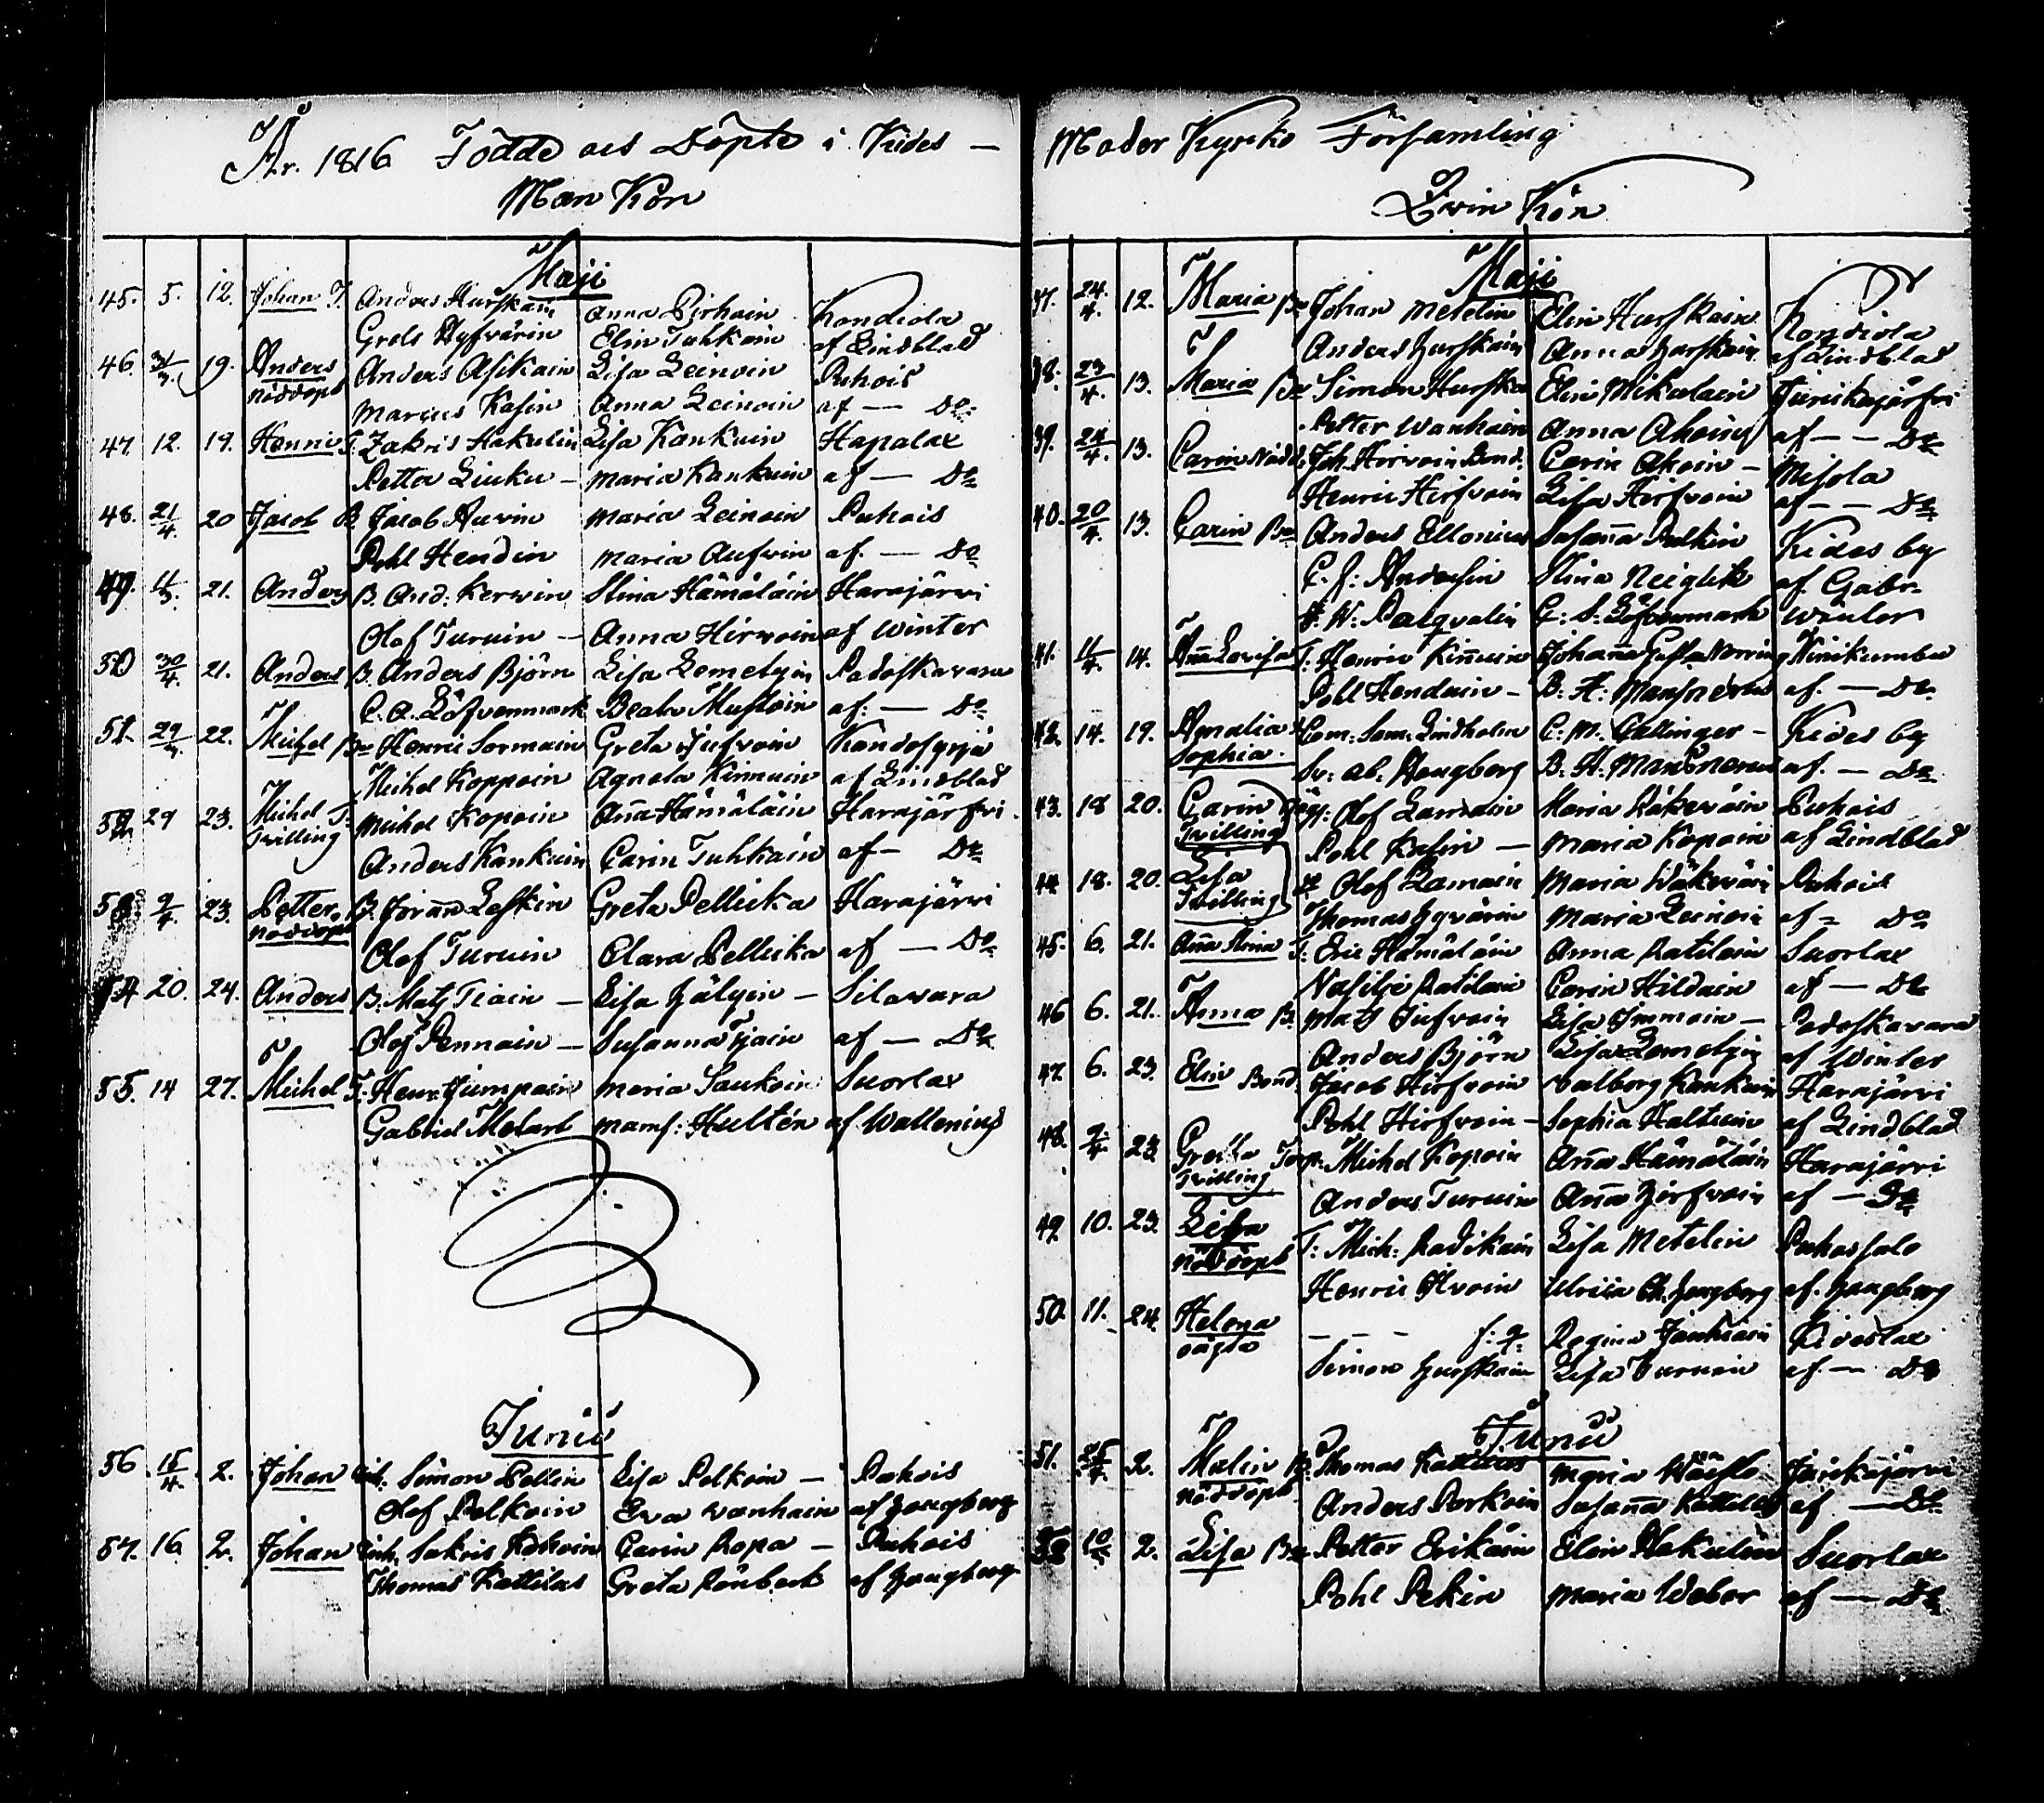 År. 1816 Födde och Döpte i Kides —
Man Kön
Maji
45. 5. 12. Johan T. Anders Hurskain Anna Pirhoin Kondiola
Grels Hyfvärin Elin Tuhkain af Lindblad
46. 19. Anders Anders Asikain Lisa Leinoin Puhois
nöddöpt Marcus Kasin Anna Leinoin af — Do
47. 12. 19. Henric T. Zakris Hakulin Lisa Kankuin Hapalax
Petter Liuku — Maria Kankuin af — Do
48. 21/4. 20 Jacob B. Jacob Auvin Maria Leinoin Puhois
Pohl Hendin Maria Aufvin af. — Do
49. 21. Anders B. And: Kervin Stina Hämäläin Harajärvi
Olof Turuin — Anna Hirvoin af Winter
50 30/4. 21. Anders B. Anders Björn Lisa Lemetyin Podoskavara
C. A. Löfvenmark Beata Mustoin af: — Do
51. 29/4. 22. Michel Bo Henric Sormuin Greta Jufvoin Kandosyrjä
Michel Koppoin Agneta Kinnuin af Lindblad
52. 29 23. Michel T. Michel Kopoin Aña Hämäläin Harajärfvi.
Tvilling Anders Kankuin Carin Tuhkain af — Do
53. 9/4. 23. Petter B. Jörañ Leskin Greta Pellicka Harajärvi
nöddöpt Olof Turuin Clara Pellicka af — Do
54 20. 24. Anders B. Mats Tiain — Lisa Jälyin — Silavara
Olof Pennain — Susanna Tjain af — Do
55. 14 27. Michel T: Henr: Jumpain Maria Saukoin Suorlax
Gabriel Molart Mams: Hultén af Wallenius
Junii
56 15/4. 2. Johan Inh. Simon Pellin Lisa Polkoin — Puhois
Olof Polkoin Eva Vanhain af Jougberg
57. 16. 2. Johan Inh. Sakris Kohoin Carin Ropa — Puhois
Thomas Kattilus Greta Rönback af Jougberg
Moder Kyrko Församling
Qvin Kön
Maji
37. 24/4. 12. Maria Bo Johan Metelin Elin Hurskain Kondiola
Anders Hurskain Anna Hurskain af Lindblad
38. 23/4. 13. Maria Bo Simon Hurskain Elin Mikulain Juirikajärfvi
Petter Wanhain Anna Ahoin af — — Do
39. 24/4. 13. Carin Nödd. Joh. Hirvoin Bond. Carin Akoin — Misola
Henric Hirfvoin Lisa Hirfvoin af — — Do
40. 20/4. 13. Carin Bo Anders Ellonius Susaña Pulkin Kides by
C. J: Andersin Stina Neiglik af Gabr.
W: Palqvalin C: S: Löfvenmark Winter
41. 11/4. 14. Aña Lovisa T: Henric Kiñuin Johaña Gusta Norring Niinikumbu
Pohl Henduin — B: H: Mansnerus af. — Do
42. 14. 19. Amalia Com: Sam: Lindholm C: M. Collinger — Kides by
Sophia. Sr: Ab. Hougberg B: H: Mansnerus af. — Do
43. 18 20. Carin Olof Lamuin Maria Wäkeväin Puhois
Tvilling Pohl Kasin — Maria Kopoin af Lindblad
44. 18. 20. Lisa Olof Lamuin Maria Wäkeväin Puhois
Tvilling Thomas Hyvärin Maria Leinoin af — Do
45. 6. 21. Aña Stina T: Eric Hämäläin Anna Ratilain Suorlax
Vasilje Ratilain Carin Hilduin af — Do
46 6. 21. Anna B. Mats Jufvoin Lisa Immoin — Podoskavara
Anders Björn Lisa Lemetyin af Winter
47. 6. 23. Elin Bond. Jacob Hirfvoin Valborg Kankuin Harajärvi
Pohl Hirfvoin — Sophia Haltuin af Lindblad
48. 23 Greta Torp. Michel Kopoin Aña Hämäläin Harajärvi
Tvilling Anders Turuin Aña Hirfvoin af — Do
49. 10. 23. Lisa T: Mich: Radikain Lisa Metelin Puhossalo
nöddöpt Henric Ihvoin Ulrica Ch. Jougberg af. Jougberg
50. 11. 24. Helena — — — Regina Jauhiain Kiveslax
oägta Simon Hurskain Lisa Turuin af. — Do
Junii
51. 25/4. 2. Malin B. Thomas Kattilus Maria Juirikajärvi
nöddöpt Anders Porkoin Susaña Kattilus af — Do
10 2. Lisa Bo Petter Erikäin Elin Hakulin Suorlax
Pohl Pekin Maria Weber af — Do